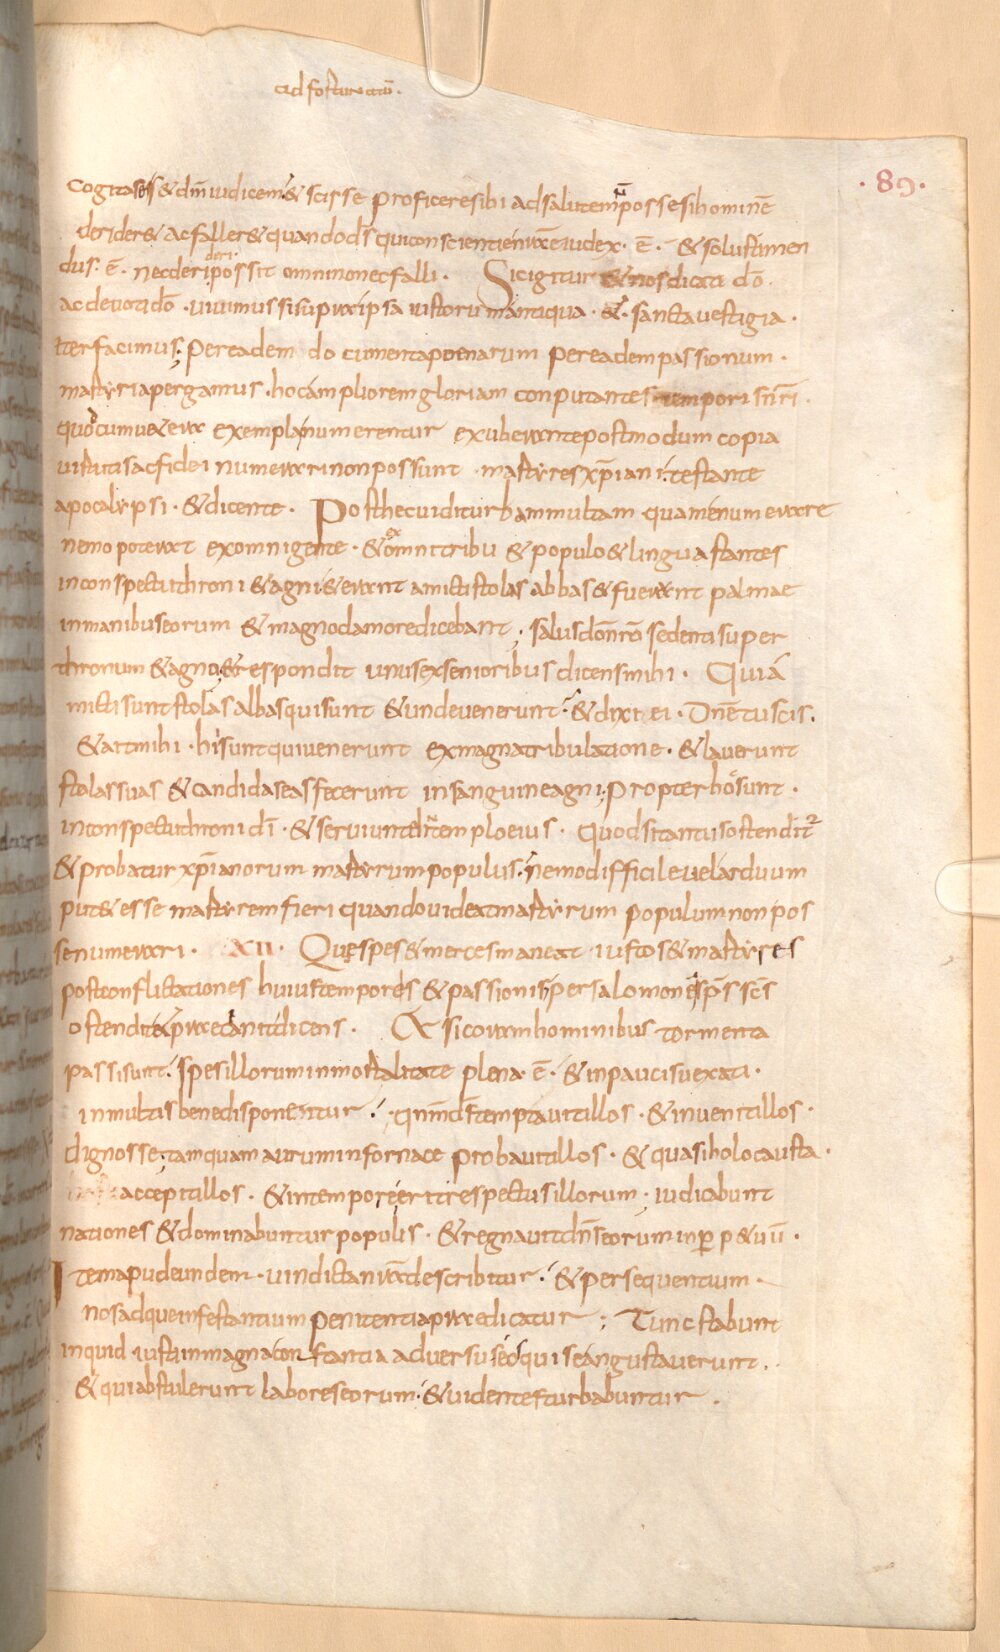 ad fortunatū.
· 89 ·
cogitasti & dn̄m iudicem & scisse proficere sibi ad salutem posse si hominē
derider& ac faller& quando d̄s qui conscientie nr̄ae iudex · ē · & solus timen
dus · ē · nec deri deri possit omnino nec falli · Si cigitur & nos dicati dō ·
ac devoti dō · vivimus si supra ipsa iustorum antiqua · & · sancta vestigia ·
iter facimus; Per eadem documenta poenarum per eadem passionum ·
martyria pergamus · hoc ampliorem gloriam conputantes temporis nr̄i ·
quod cum u&era exempla numerentur exuberante postmodum copia
virtutis ac fidei numerari non possunt · martyres xp̄iani · testante
apocalypsi · & dicente · Post hec vidi turbam multam quam enumerare
nemo poterat ex omni gente · & ex omni tribu & populo & lingua stantes
in conspectu throni & agni & erant amicti stolas albas & fuerant palmae
in manibus eorum & magno damore dicebant; salus dō nr̄o sedenti super
thronum & agno; & respondit unus ex senioribus dicens mihi · Qui a
micti sunt stolas albas qui sunt & unde venerunt · & dixi ei · Dn̄e tu scis ·
& ait mihi · hi sunt qui venerunt ex magna tribulatione · & laverunt
stolas suas & candidas eas fecerunt in sanguine agni; Propter hoc sunt ·
in conspectu throni dī · & serviunt ei in templo eius · Quod si tantus ostendit̄
& probatur xp̄ianorum martyrum populus · nemo difficile vel arduum
put& esse martyrem fieri quando videat martyrum populum non pos
se numerari · XII · Que spes & merces maneat iustos & martyres
post conflictationes huius temporis & passionis per salomonē sp̄s sc̄s
ostendit & praecanit dicens · & si coram hominibus tormenta
passi sunt · spes illorum inmortalitate plena · ē · & in paucis vexati ·
in multis bene disponentur · qnm̄ d̄s temptavit illos · & invenit illos ·
dignos se; tamquam aurum in fornace probavit illos · & quasi holocausta
accepit illos · & in tempore erit respectus illorum; iudicabunt
nationes & dominabuntur populis · & regnavit dn̄s eorum inꝑp&uū ·
Item apud eundem · vindicta nr̄a describitur · & persequentium ·
nos adque infestantium penitentia praedicatur; Tunc stabunt
inquid iusti in magna constantia adversus eos qui se angustaverunt ·
& qui abstulerunt labores eorum · & videntes turbabuntur ·